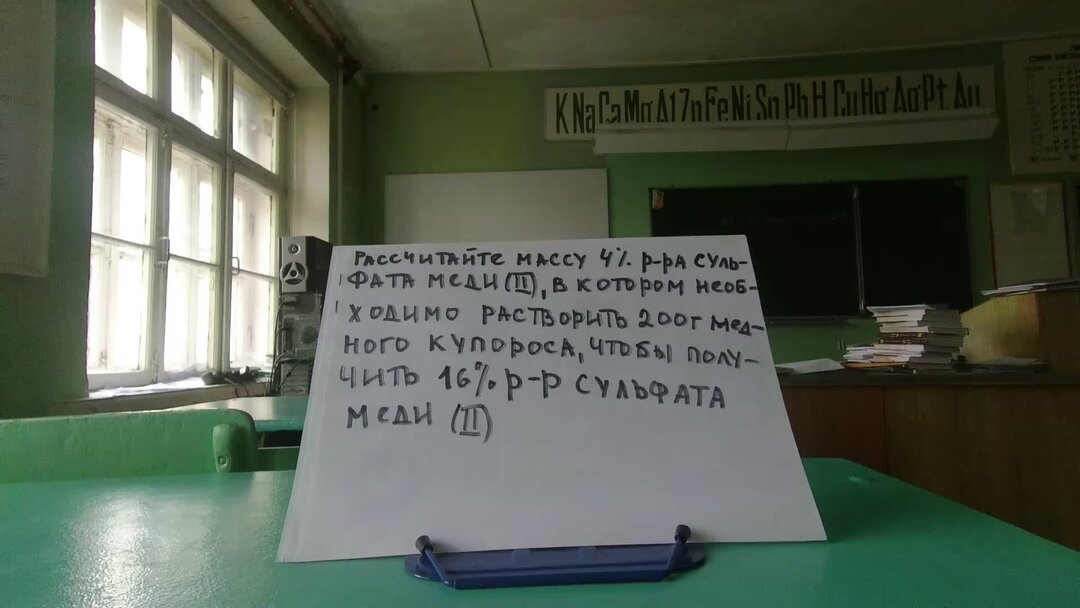 K Na Ca Mg Al Zn Fe Ni Sn Pb H Cu Hg Ag Pt Au
РАССЧИТАЙТЕ МАССУ 4% Р-РА СУЛЬ-
ФАТА МЕДИ (II), В КОТОРОМ НЕОБ-
ХОДИМО РАСТВОРИТЬ 200г МЕД-
НОГО КУПОРОСА, ЧТОБЫ ПОЛУ-
ЧИТЬ 16% Р-Р СУЛЬФАТА
МЕДИ (II)